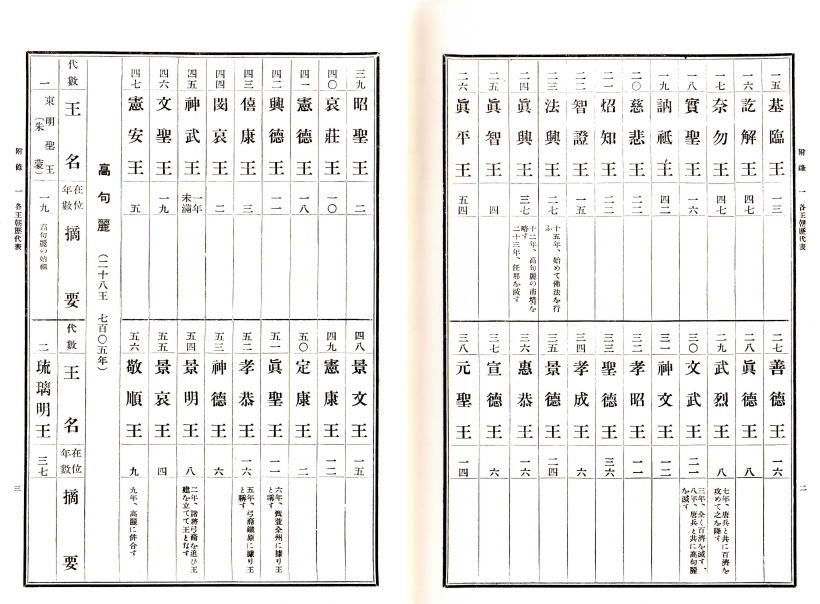 附錄 一 各王朝歷代表
一五 基臨王 一三
一六 訖解王 四七
一七 奈勿王 四七
一八 實聖王 一六
一九 訥祗王 四二
二〇 慈悲王 二二
二一 炤知王 二二
二二 智證王 一五
二三 法興王 二七 十五年、始めて佛法を行
ふ
二四 眞興王 三七 十二年、高句麗の南境を
略す
二十三年、任那を滅す
二五 眞智王 四
二六 眞平王 五四
二七 善德王 一六
二八 眞德王 八
二九 武烈王 八 七年、唐兵と共に百濟を
攻めて之を降す
三〇 文武王 二一 三年、全く百濟を滅す、
八年、唐兵と共に高句麗
を滅す
三一 神文王 一二
三二 孝昭王 一一
三三 聖德王 三六
三四 孝成王 六
三五 景德王 二四
三六 惠恭王 一六
三七 宣德王 六
三八 元聖王 一四
二
三九 昭聖王 二
四〇 哀莊王 一〇
四一 憲德王 一八
四二 興德王 一一
四三 僖康王 三
四四 閔哀王 二
四五 神武王 一年
未滿
四六 文聖王 一九
四七 憲安王 五
四八 景文王 一五
四九 憲康王 一二
五〇 定康王 二
五一 眞聖王 一一 六年、甄萱全州に據り王
と稱す
五二 孝恭王 一六 五年、弓裔鐵原に據り王
と稱す
五三 神德王 六
五四 景明王 八 二年、諸將弓裔を追ひ王
建を立てて王となす
五五 景哀王 四
五六 敬順王 九 九年、高麗に併合す
高句麗 (二十八王 七百〇五年)
代數 王名 在位
年數 摘要
代數 王名 在位
年數 摘要
一 東明聖王
(朱蒙) 一九 高句麗の始祖
二 琉璃明王 三七
附錄 一 各王朝歷代表
三